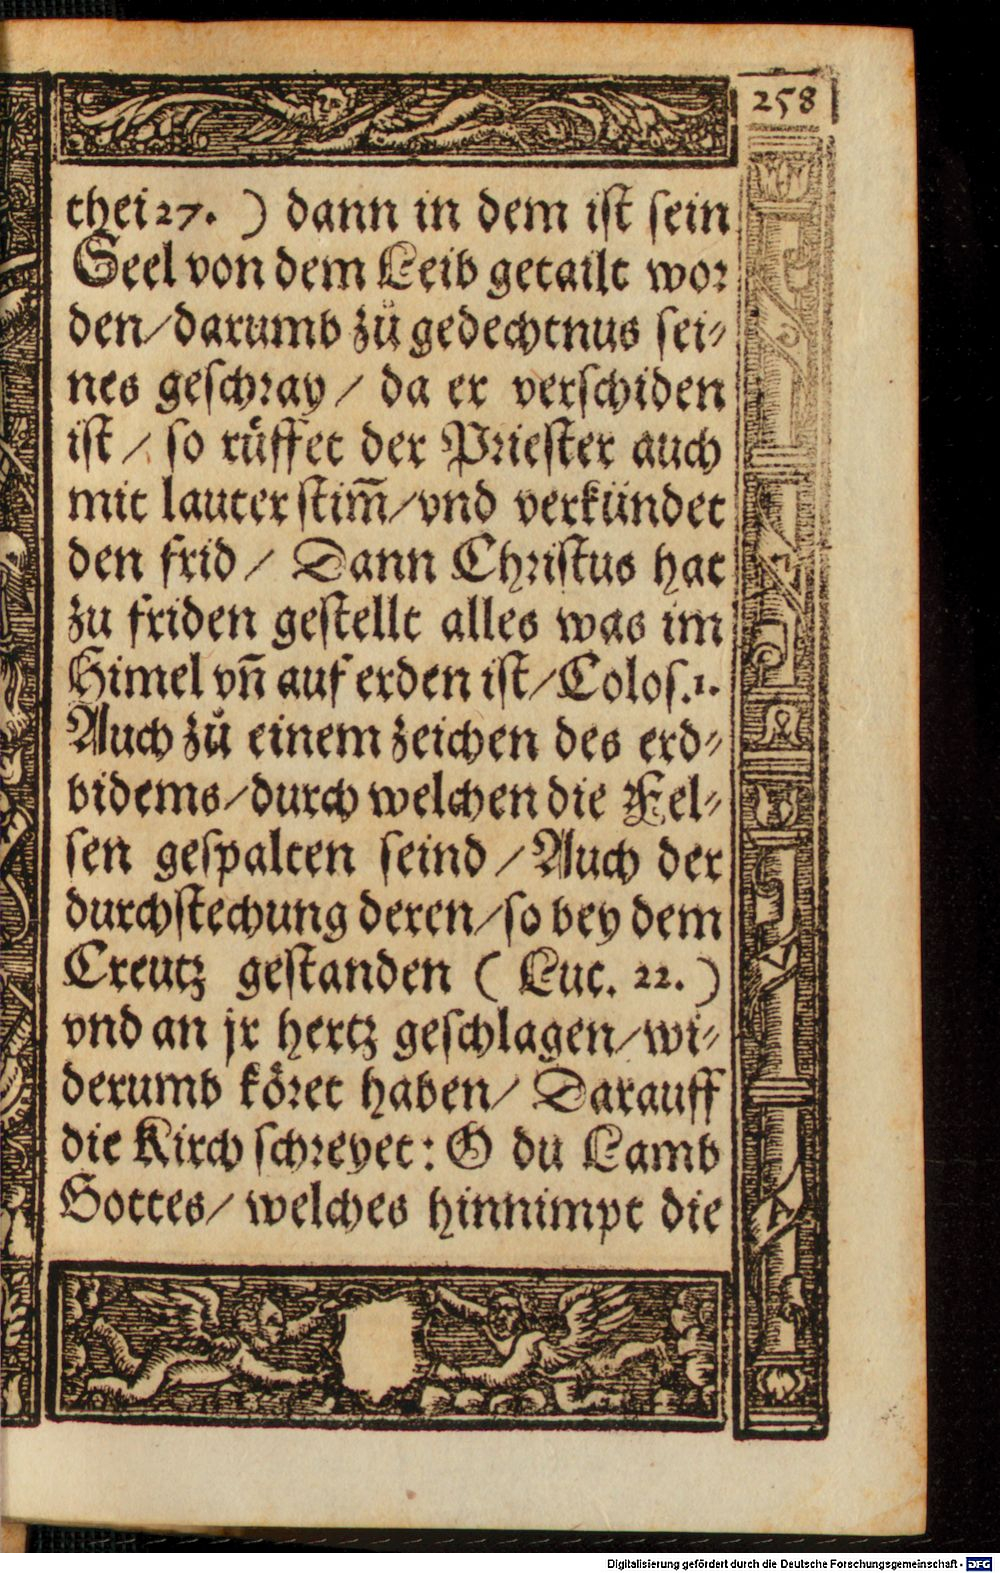 258
thei 27. ) dann in dem ist sein
Seel von dem Leib getailt wor
den/darumb zů gedechtnus sei-
nes geschray / da er verschiden
ist / so rüffet der Priester auch
mit lauter stim̄/vnd verkündet
den frid / Dann Christus hat
zu friden gestellt alles was im
Himel vn̄ auf erden ist/Colos.1.
Auch zů einem zeichen des erd-
bidems/durch welchen die Fel-
sen gespalten seind / Auch der
durchstechung deren/so bey dem
Creutz gestanden ( Luc. 22. )
vnd an jr hertz geschlagen/wi-
derumb köret haben/ Darauff
die Kirch schreyet: O du Lamb
Gottes/ welches hinnimpt die
Digitalisierung gefördert durch die Deutsche Forschungsgemeinschaft - DFG